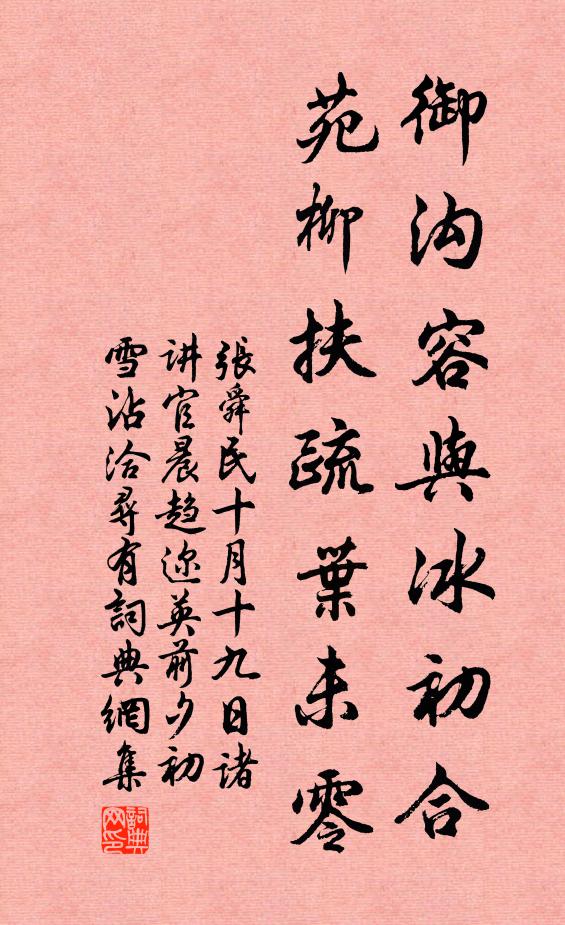 御沟容與冰初合
苑柳扶疏葉未零
張舜民十月十九日諸
讲官晨趋迩英前夕初
雪沾洽尋有詞典網集
詞典网印